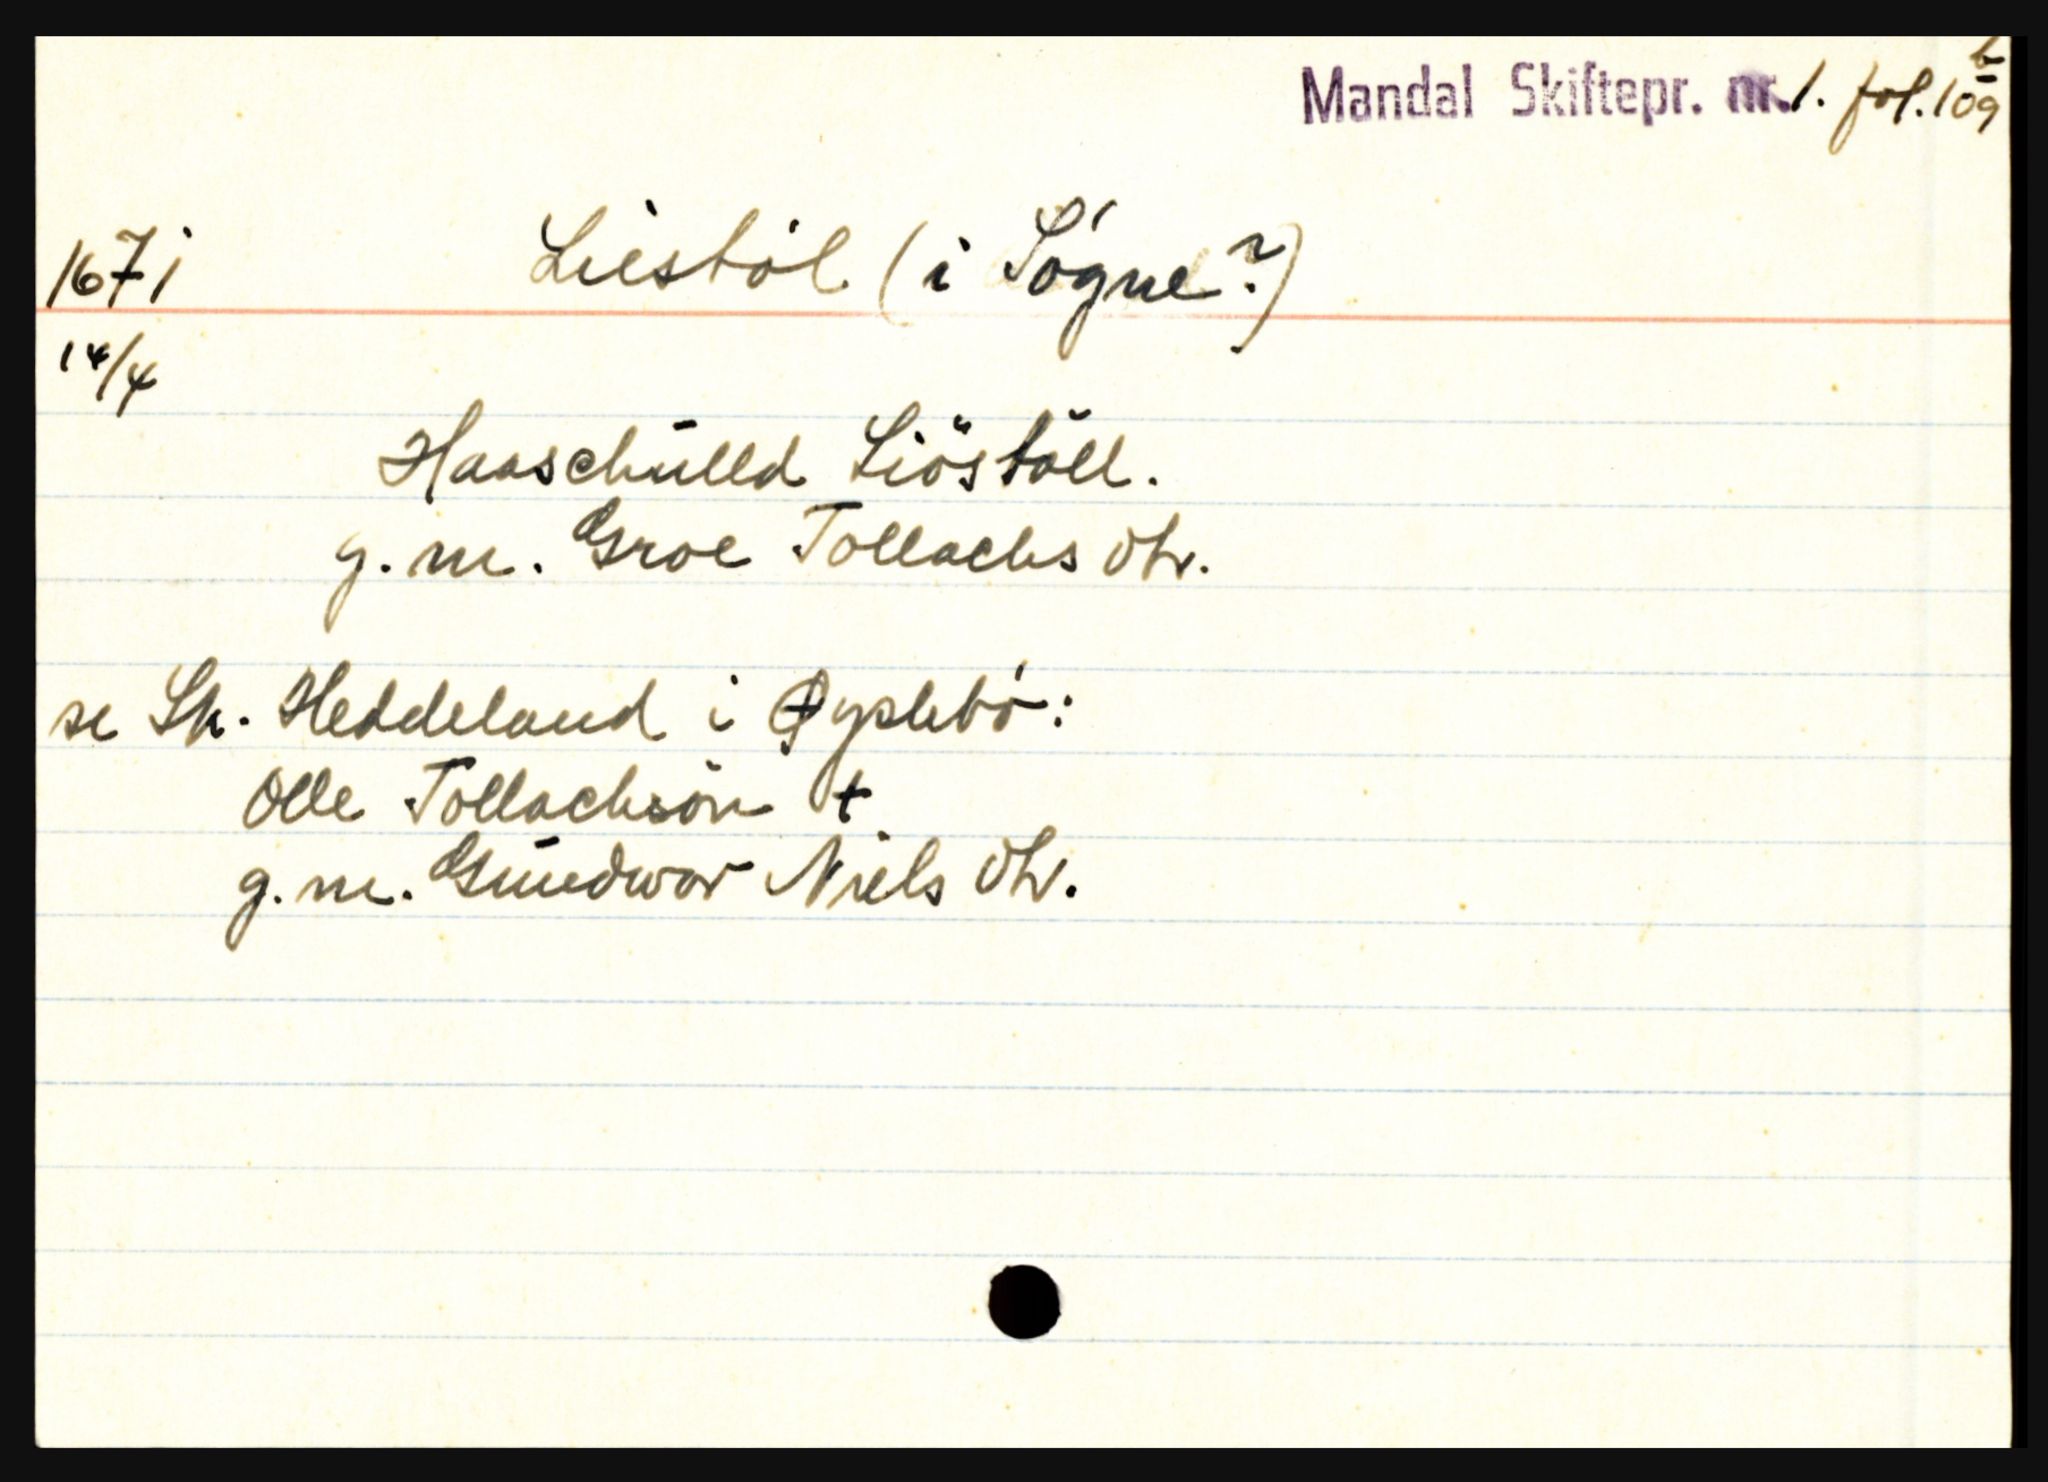 Mandal Skiftepr. nr. 1. fol. 109 b
1671 Liestöl (i Sögne?)
14/4
Haaschulld Liöstöll.
g. m. Groe Tollachs dtr.
se Sk. Heddeland i Øyslebö:
Olle Tollachsön +
g. m. Gundwor Niels dtr.